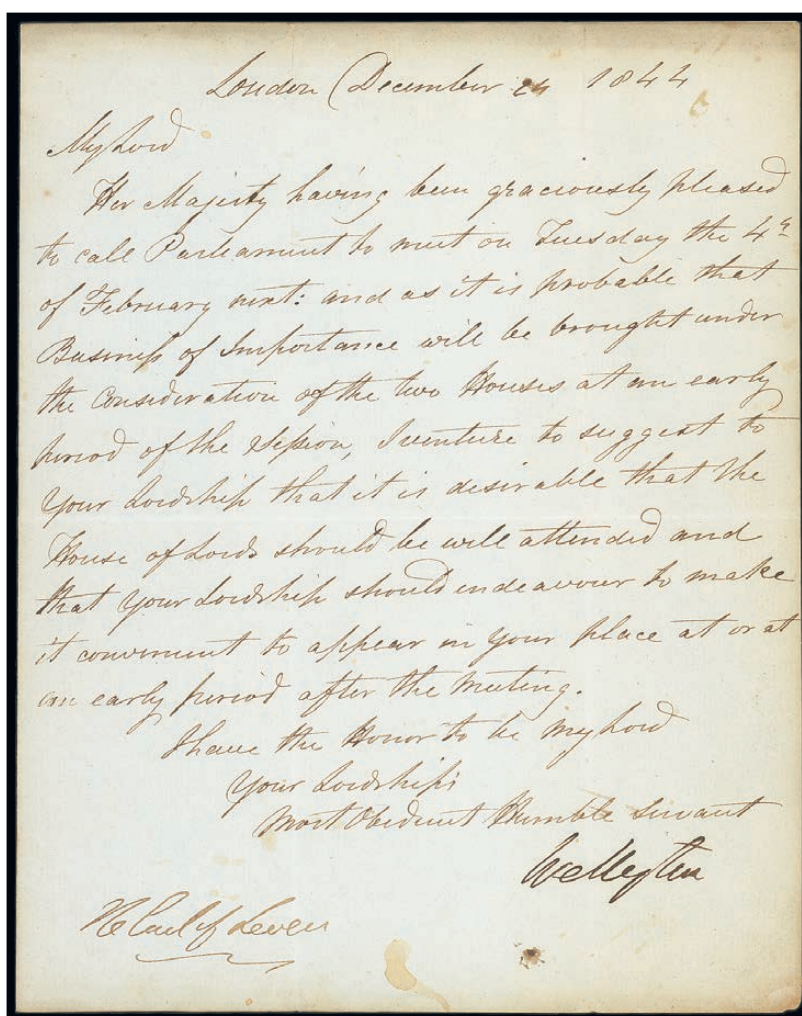 London December 24 1844
My Lord
Her Majesty having been graciously pleased
to call Parliament to meet on Tuesday the 4th
of February next: and as it is probable that
Business of Importance will be brought under
the Consideration of the two Houses at an early
period of the Session, I venture to suggest to
Your Lordship that it is desirable that the
House of Lords should be well attended and
that Your Lordship should endeavour to make
it convenient to appear in Your place at or at
an early period after the Meeting.
I have the Honor to be My Lord
Your Lordship's
Most Obedient Humble Servant
Wellington
The Earl of Leven